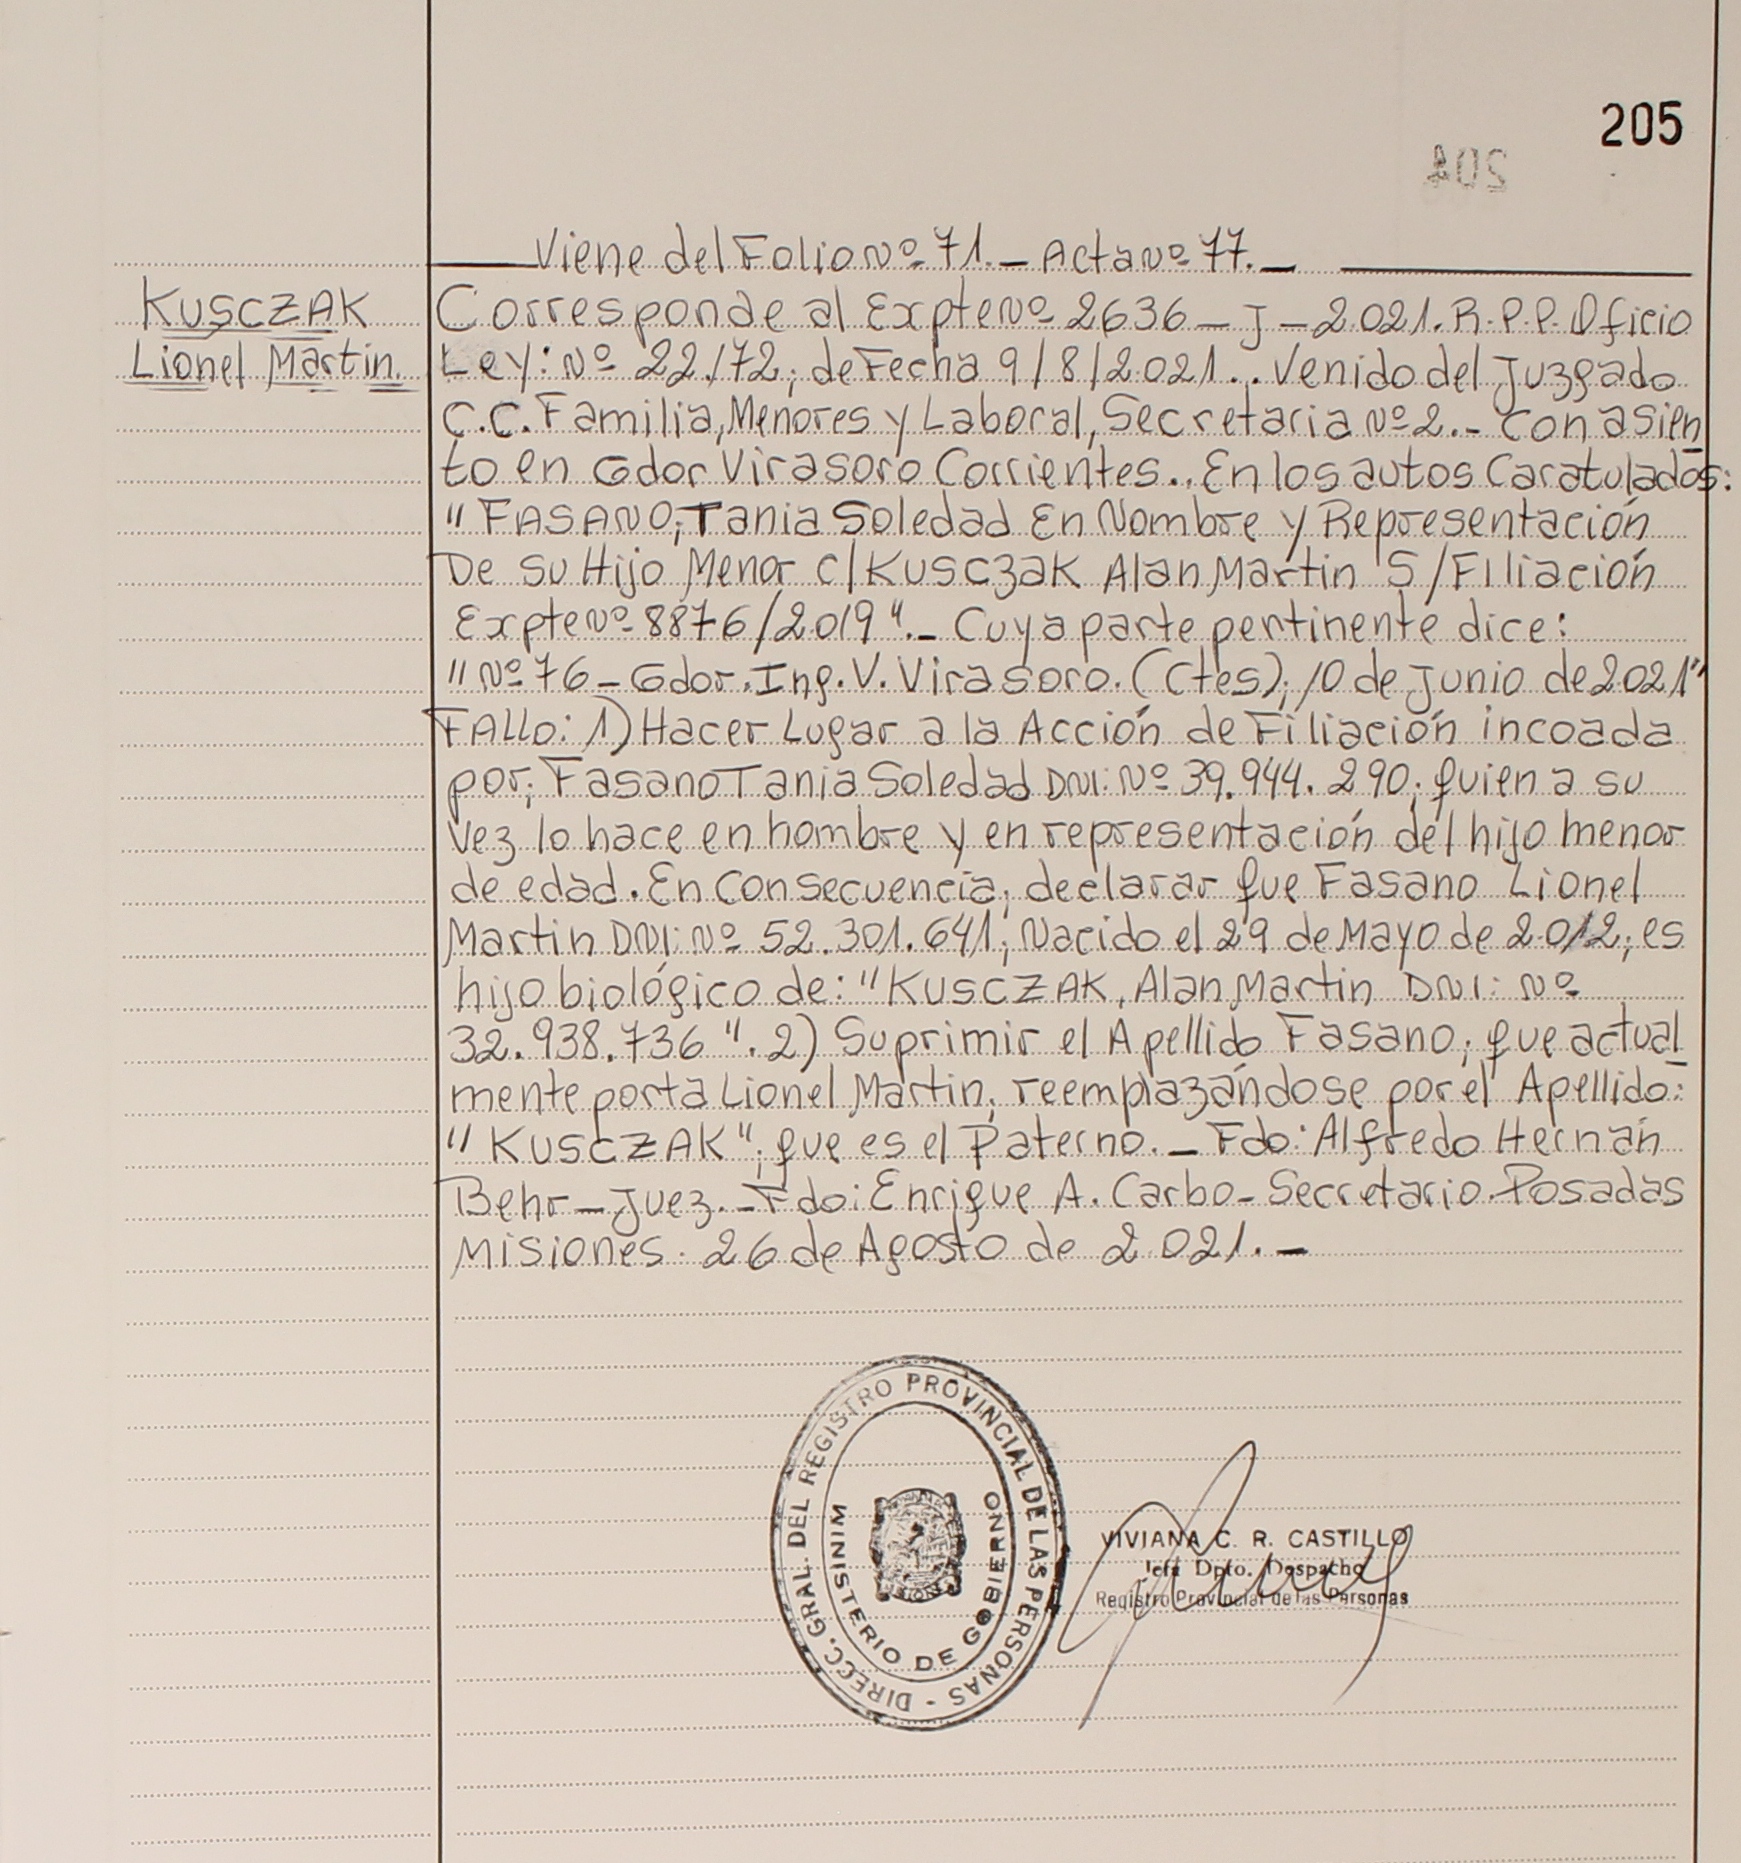 205
204
Viene del Folio Nº 71. - Acta Nº 77. -
KUSCZAK
Lionel Martin.
Corresponde al Expte Nº 2636 - J - 2021. R.P.P. Oficio
Ley: Nº 22172, de Fecha 9/8/2021.. Venido del Juzgado
C.C. Familia, Menores y Laboral, Secretaria Nº 2.- Con asien
to en Gdor Virasoro Corrientes.. En los autos Caratulados:
"FASANO, Tania Soledad En Nombre y Representación
De su Hijo Menor C/ KUSCZAK Alan Martin S/Filiación
Expte Nº 8876/2019". - Cuya parte pertinente dice:
"Nº 76 - Gdor. Ing. V. Virasoro. (Ctes), 10 de Junio de 2021"
FALLO: 1) Hacer Lugar a la Acción de Filiación incoada
por, Fasano Tania Soledad DNI: Nº 39.944.290, quien a su
vez lo hace en nombre y en representación del hijo menor
de edad. En Consecuencia, declarar que Fasano Lionel
Martin DNI: Nº 52.301.641, Nacido el 29 de Mayo de 2012, es
hijo biológico de: "KUSCZAK, Alan Martin DNI: Nº
32.938.736". 2) Suprimir el Apellido Fasano, que actual
mente porta Lionel Martin, reemplazándose por el Apellido:
"KUSCZAK", que es el Paterno. - Fdo: Alfredo Hernán
Behr - Juez. - Fdo: Enrique A. Carbo - Secretario. Posadas
Misiones. 26 de Agosto de 2021. -
DIRECC. GRAL. DEL REGISTRO PROVINCIAL DE LAS PERSONAS -
MINISTERIO DE GOBIERNO
VIVIANA C. R. CASTILLO
Jefa Dpto. Despacho
Registro Provincial de las Personas